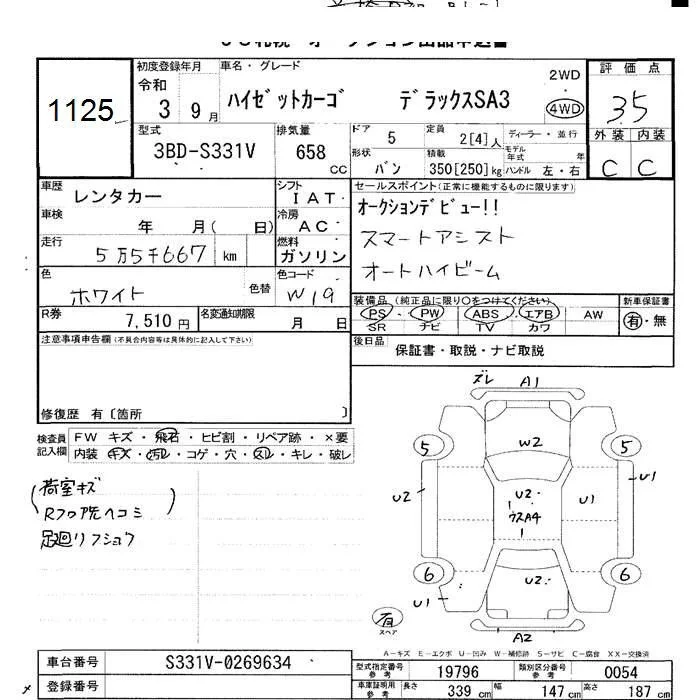 1125
初度登録年月
令和
3 9月
車名・グレード
ハイゼットカーゴ デラックスSA3
2WD
4WD
評価点
3.5
外装 内装
C C
型式
3BD-S331V
排気量
658 CC
ドア 5
定員 2[4]人
ディーラー・並行
形状 バン
積載 350[250]kg
モデル年式 年
ハンドル 左・右
車歴
レンタカー
シフト
IAT
車検
年 月( 日)
冷房
AC
走行
5万5千667 km
燃料
ガソリン
色
ホワイト
色替
色コード
W19
R券
7,510円
名変通知期限
月 日
セールスポイント(正常に機能するものに限ります)
オークションデビュー!!
スマートアシスト
オートハイビーム
装備品(純正品に限り○をつけてください)
PS・PW ABS・エアB AW
SR ナビ TV カワ
新車保証書
有・無
後日品
保証書・取説・ナビ取説
注意事項申告欄(不具合内容等は具体的に記入して下さい)
修復歴 有〔箇所 〕
検査員記入欄
FW キズ・飛石・ヒビ割・リペア跡・×要
内装 キズ・汚レ・コゲ・穴・スレ・キレ・破レ
荷室キズ
Rフロア先ヘコミ
足廻リフショク
ズレ A1
5
5
W2
U1
U2
U2
U1
ウスA4
6
6
U2
U1
有
スペア
A2
A-キズ E-エクボ U-凹み W-補修跡 S-サビ C-腐食 XX-交換済
車台番号
S331V-0269634
登録番号
型式指定番号
参考
19796
類別区分番号
参考
0054
車庫証明用
参考
長さ 339 cm
幅 147 cm
高さ 187 cm